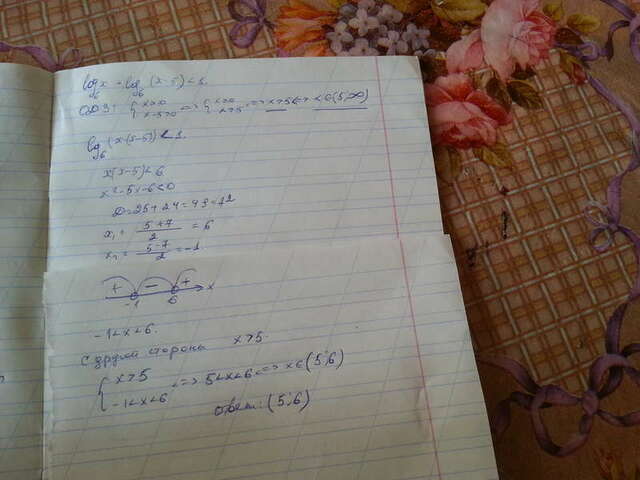 log₆x + log₆(x-5) < 1.
ОДЗ: { x>0 x-5>0 <=> { x>0 x>5 <=> x>5 <=> x∈(5;∞)
log₆(x(x-5)) < 1.
x(x-5) < 6
x²-5x-6<0
D=25+24=49=7²
x₁ = (5+7)/2 = 6
x₂ = (5-7)/2 = -1
+ - + x
-1 6
-1<x<6.
С другой стороны x>5.
{ x>5 -1<x<6 <=> 5<x<6 <=> x∈(5;6)
ответ: (5;6)